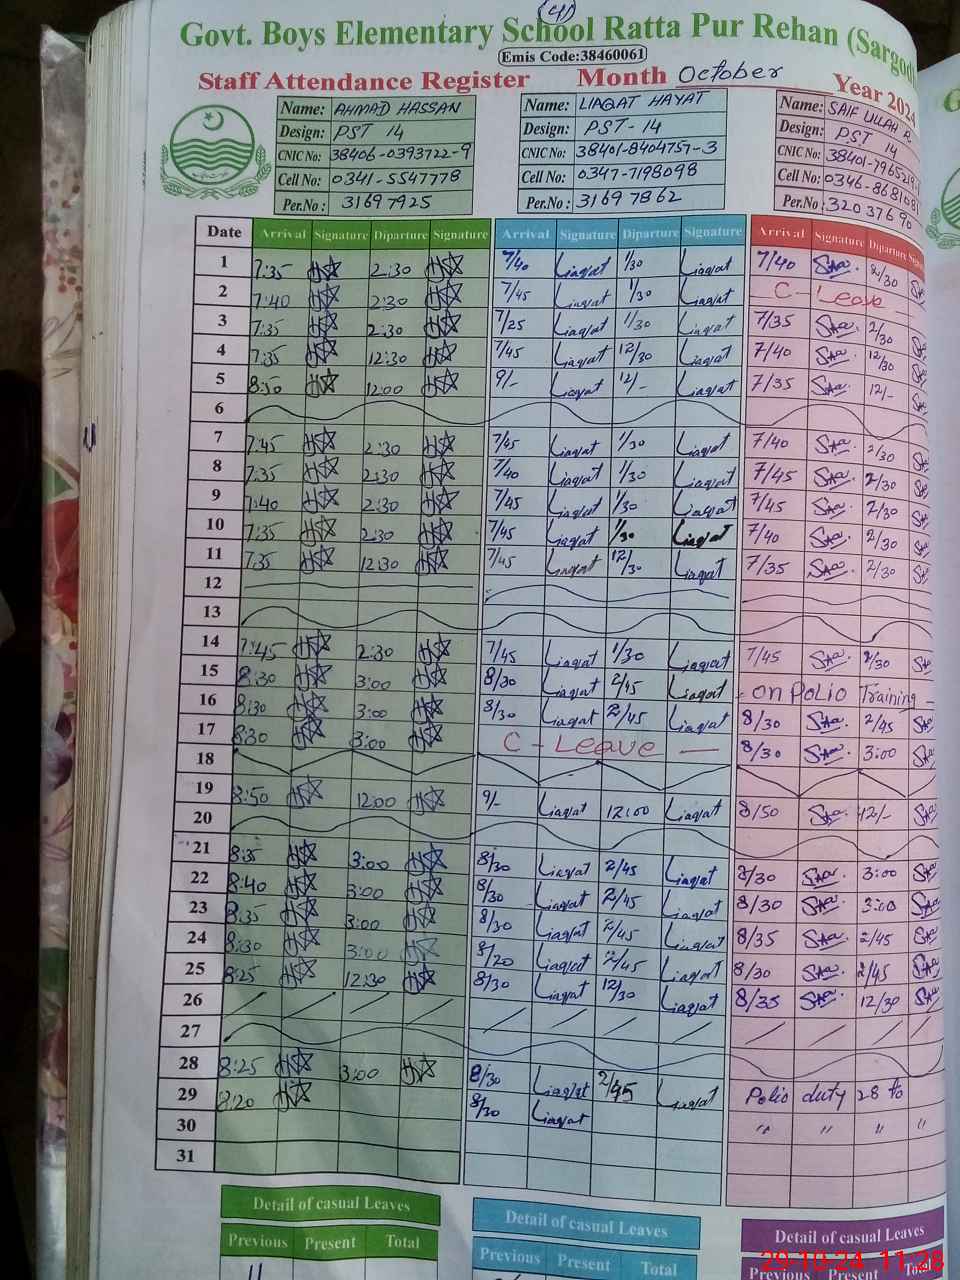 (4)
Govt. Boys Elementary School Ratta Pur Rehan (Sargod
Emis Code:38460061
Staff Attendance Register Month October Year 2024
Name: AHMAD HASSAN Name: LIAQAT HAYAT Name: SAIF ULLAH R
Design: PST 14 Design: PST-14 Design: PST 14
CNIC No: 38406-0393722-9 CNIC No: 38401-8404757-3 CNIC No: 38401-7965219-
Cell No: 0341-5547778 Cell No: 0347-7198098 Cell No: 0346-8681081
Per.No: 31697925 Per.No: 31697862 Per.No: 32037690
Date Arrival Signature Diparture Signature Arrival Signature Diparture Signature Arrival Signature Diparture Sign
1 7:35 2:30 7/40 Liaqat 1/30 Liaqat 7/40 2/30
2 7:40 2:30 7/45 Liaqat 1/30 Liaqat C - Leave
3 7:35 2:30 7/25 Liaqat 1/30 Liaqat 7/35 2/30
4 7:35 12:30 7/45 Liaqat 12/30 Liaqat 7/40 12/30
5 8:30 12:00 9/- Liaqat 12/- Liaqat 7/35 12/-
6
7 7:45 2:30 7/45 Liaqat 1/30 Liaqat 7/40 2/30
8 7:35 2:30 7/40 Liaqat 1/30 Liaqat 7/45 2/30
9 7:40 2:30 7/45 Liaqat 1/30 Liaqat 7/45 2/30
10 7:35 2:30 7/45 Liaqat 1/30 Liaqat 7/40 2/30
11 7:35 12:30 7/45 Liaqat 12/30 Liaqat 7/35 2/30
12
13
14 7:45 2:30 7/45 Liaqat 1/30 Liaqat 7/45 2/30
15 8:30 3:00 8/30 Liaqat 2/45 Liaqat - on Polio Training -
16 8:30 3:00 8/30 Liaqat 2/45 Liaqat 8/30 2/45
17 8:30 3:00 C - Leave — 8/30 3:00
18
19 8:50 12:00 9/- Liaqat 12:00 Liaqat 8/50 12/-
20
21 8:35 3:00 8/30 Liaqat 2/45 Liaqat 8/30 3:00
22 8:40 3:00 8/30 Liaqat 2/45 Liaqat 8/30 3:00
23 8:35 3:00 8/30 Liaqat 2/45 Liaqat 8/35 2/45
24 8:30 3:00 8/20 Liaqat 2/45 Liaqat 8/30 2/45
25 8:25 12:30 8/30 Liaqat 12/30 Liaqat 8/35 12/30
26
27
28 8:25 3:00 8/30 Liaqat 2/45 Liaqat Polio duty 28 to
29 8:20 8/30 Liaqat " " " "
30
31
Detail of casual Leaves Detail of casual Leaves Detail of casual Leaves
Previous Present Total Previous Present Total Previous Present Total
29-10-24 11:28